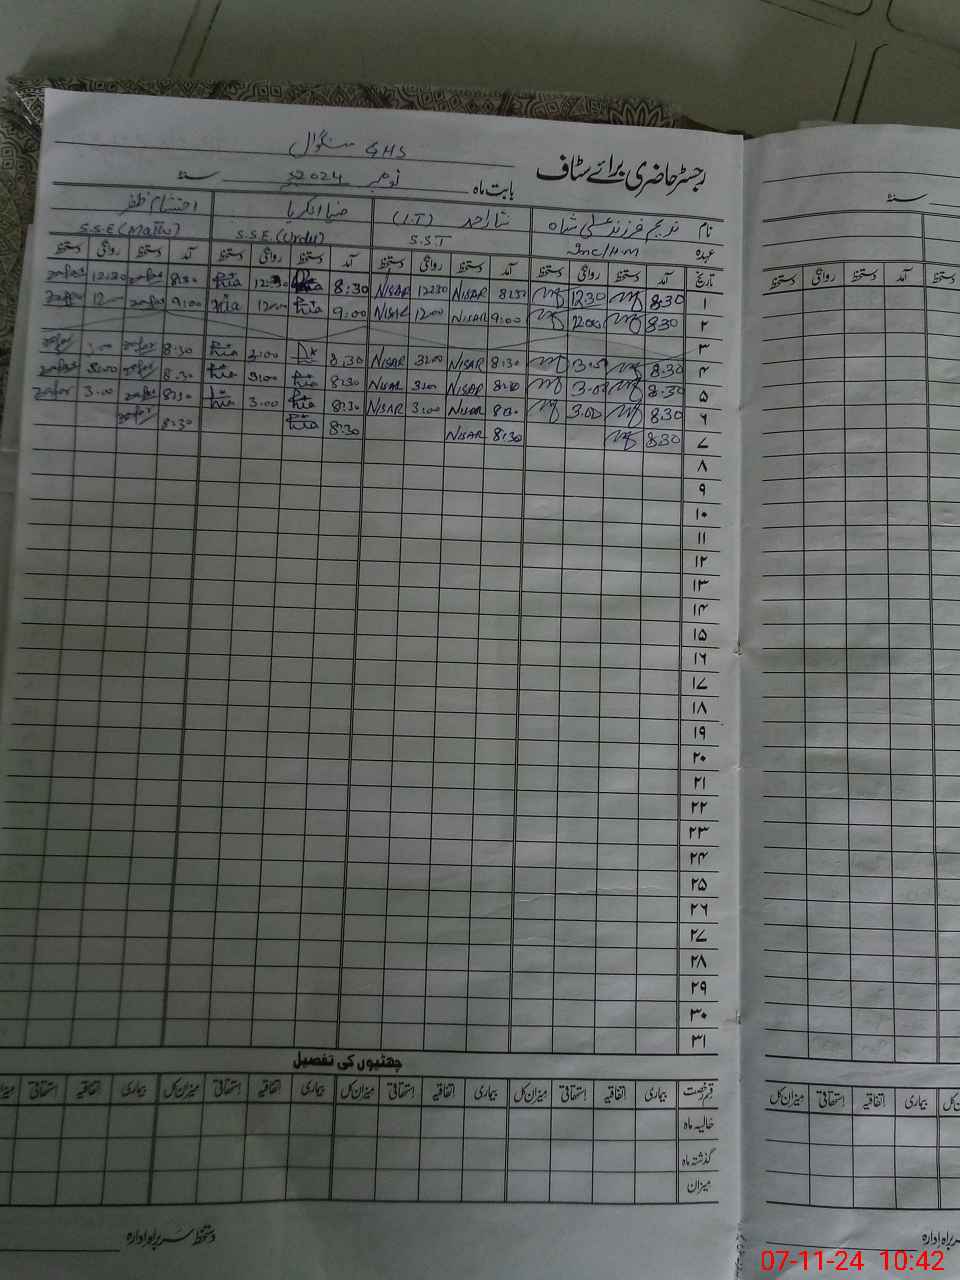 رجسٹر حاضری برائے سٹاف
GHS سنگوال
بابت ماہ نومبر 2024 سنہ
نام
نثار احمد (I.T) ضیا زکریا احتشام ظفر
عہدہ Inc/H.M S.S.T S.S.E (Urdu) S.S.E (Math)
تاریخ آمد دستخط روانگی دستخط آمد دستخط روانگی دستخط آمد دستخط روانگی دستخط آمد دستخط روانگی دستخط
۱ 8:30 12:30 8:30 NISAR 12:30 NISAR 8:30 Zia 12:30 Zia 8:30 zafar 12:30 zafar
۲ 8:30 12:00 9:00 NISAR 12:00 NISAR 9:00 Zia 12:00 Zia 9:00 zafar 12 zafar
۳
۴ 8:30 3:00 8:30 NISAR 3:00 NISAR 8:30 3:00 Zia 8:30 zafar 3:00 zafar
۵ 8:30 3:00 8:30 NISAR 3:00 NISAR 8:30 Zia 3:00 Zia 8:30 zafar 3:00 zafar
۶ 8:30 3:00 8:30 NISAR 3:00 NISAR 8:30 Zia 3:00 Zia 8:30 zafar 3:00 zafar
۷ 8:30 8:30 NISAR 8:30 Zia 8:30 zafar
۸
۹
۱۰
۱۱
۱۲
۱۳
۱۴
۱۵
۱۶
۱۷
۱۸
۱۹
۲۰
۲۱
۲۲
۲۳
۲۴
۲۵
۲۶
۲۷
۲۸
۲۹
۳۰
۳۱
چھٹیوں کی تفصیل
قسم رخصت بیماری اتفاقیہ استحقاقی میزان کل بیماری اتفاقیہ استحقاقی میزان کل بیماری اتفاقیہ استحقاقی میزان کل بیماری اتفاقیہ استحقاقی
حالیہ ماہ
گذشتہ ماہ
میزان
دستخط سربراہ ادارہ
سنہ
دستخط آمد دستخط روانگی دستخط
بیماری اتفاقیہ استحقاقی میزان کل
سربراہ ادارہ
07-11-24 10:42